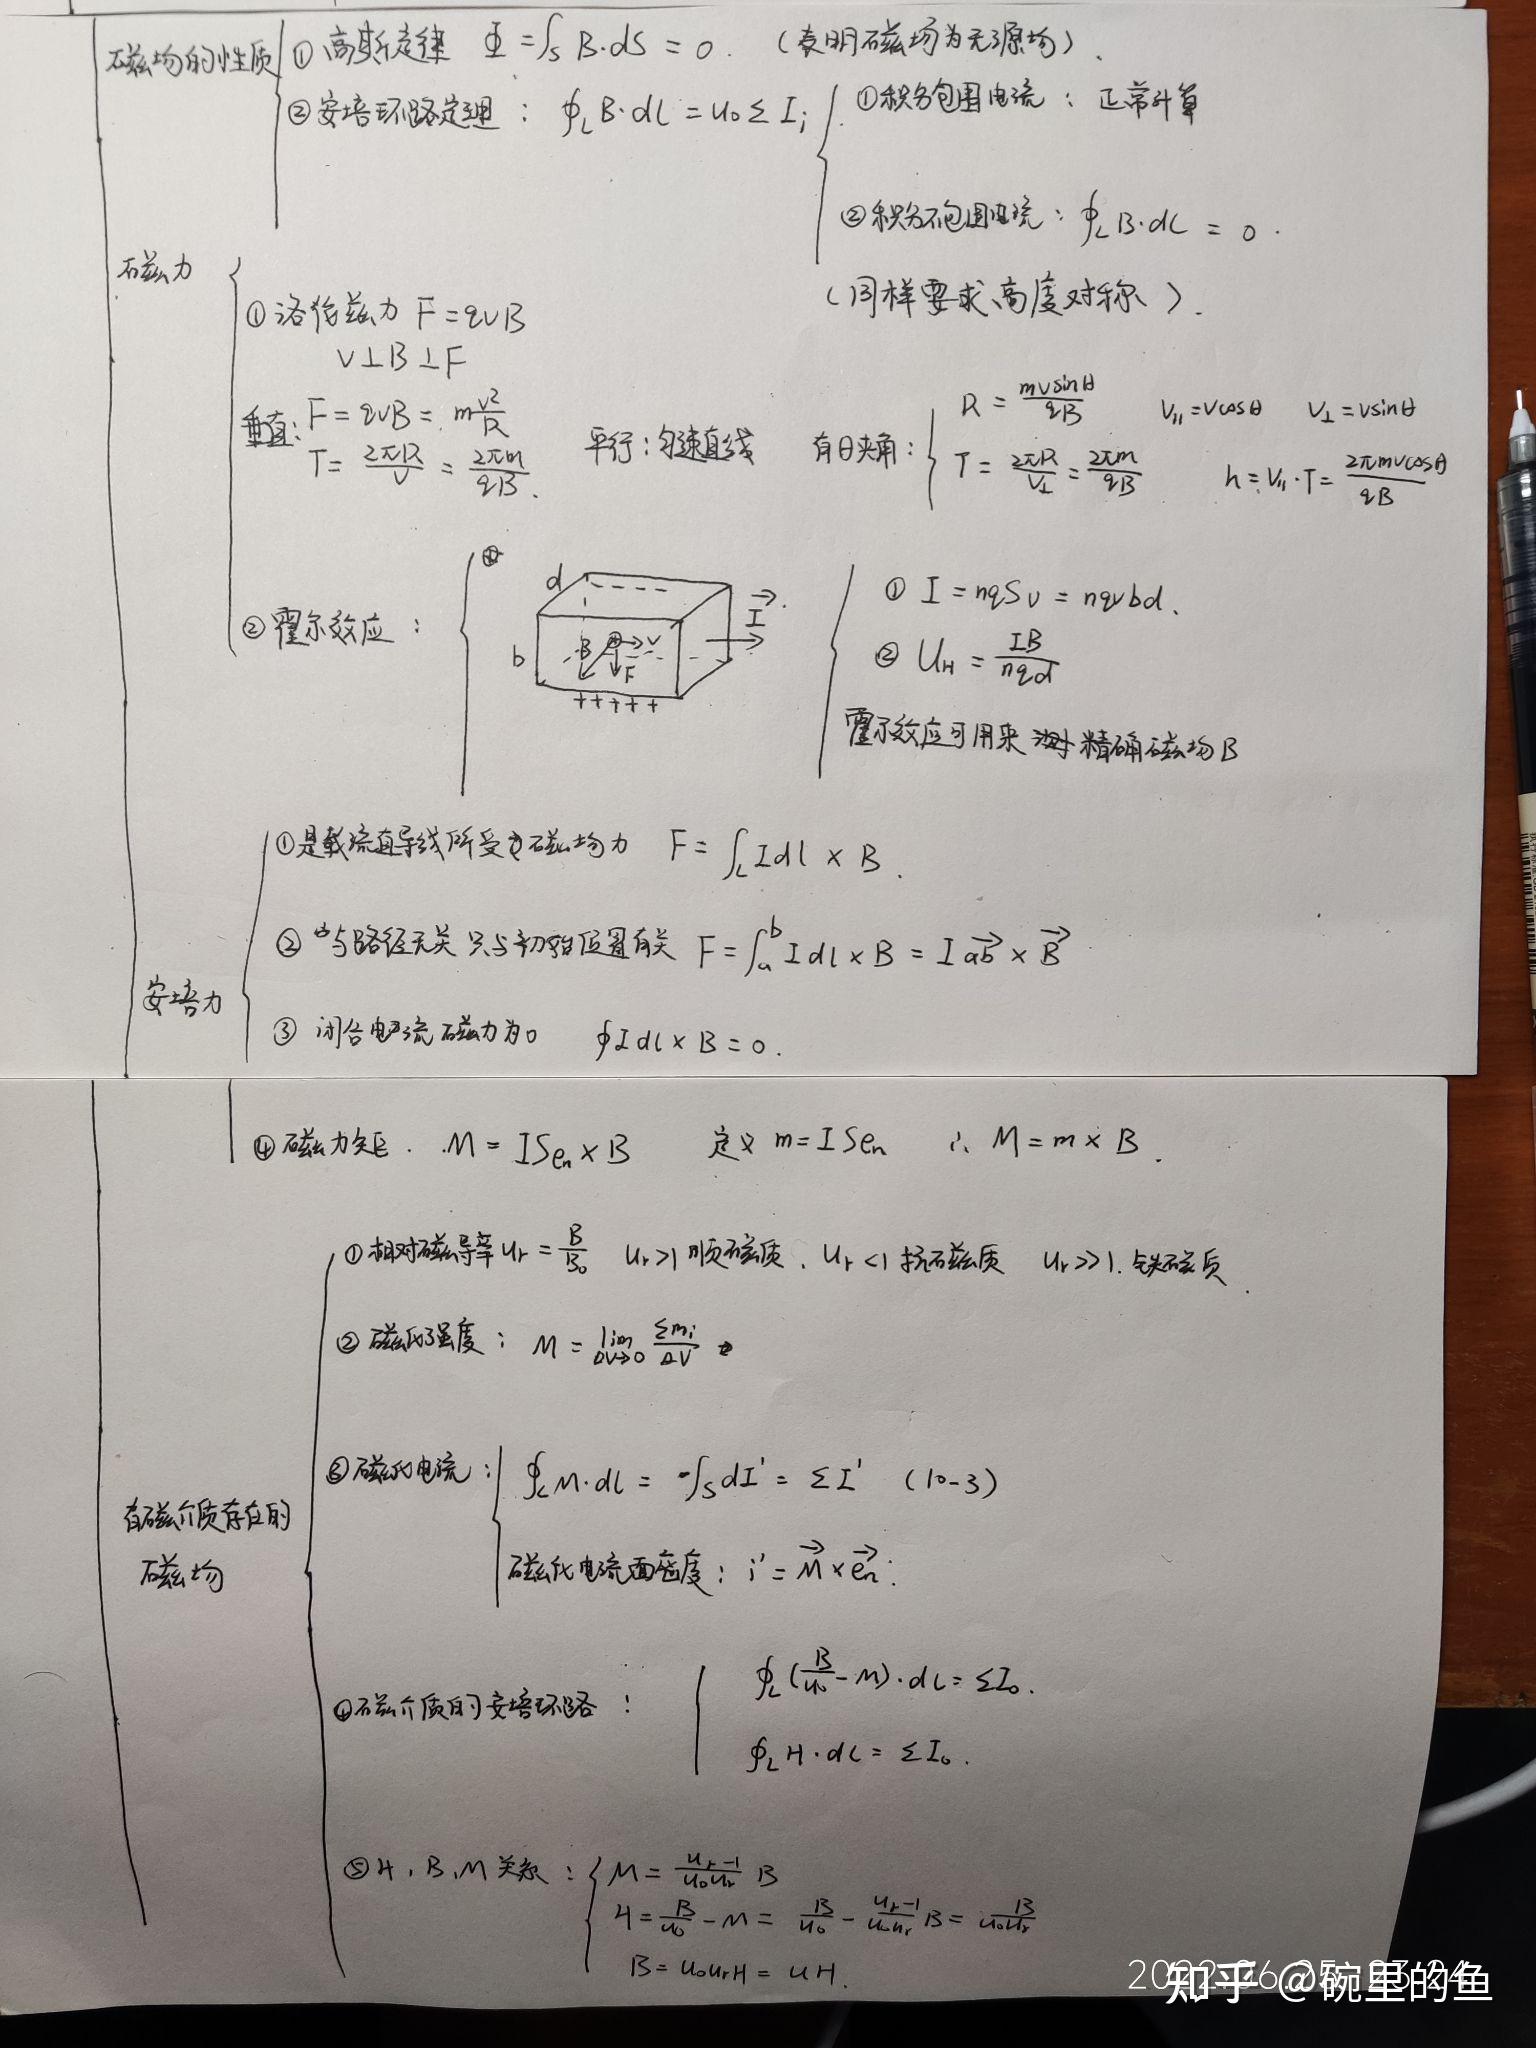 磁场的性质
① 高斯定律 Φ = ∫s B·dS = 0. (表明磁场为无源场).
② 安培环路定理: ∮L B·dl = u₀ Σ Ii
① 积分包围电流: 正常计算
② 积分不包围电流: ∮L B·dl = 0.
(同样要求高度对称).
磁力
① 洛伦兹力 F = qvB
v⊥B⊥F
垂直: F = qvB = m v²/R
T = 2πR/v = 2πm/qB.
平行: 匀速直线
有θ夹角:
R = mvsinθ/qB v∥ = vcosθ v⊥ = vsinθ
T = 2πR/v⊥ = 2πm/qB h = v∥·T = 2πmvcosθ/qB
② 霍尔效应:
d
b
B
v
F
I
+++++
① I = nqSv = nqvbd.
② UH = IB/nqd
霍尔效应可用来测精确磁场B
安培力
① 是载流直导线所受磁场力 F = ∫L Idl × B.
② 与路径无关 只与初始位置有关 F = ∫ₐᵇ Idl × B = I ab→ × B→
③ 闭合电流磁力为0 ∮Idl × B = 0.
④ 磁力矩. M = ISeₙ × B 定义 m = ISeₙ ∴ M = m × B.
有磁介质存在的
磁场
① 相对磁导率 ur = B/B₀ ur>1 顺磁质. ur<1 抗磁质 ur>>1. 铁磁质.
② 磁化强度: M = lim ΔV→0 Σmi/ΔV
③ 磁化电流: ∮L M·dl = ∫s dI' = ΣI' (10-3)
磁化电流面密度: i' = M→ × eₙ→.
④ 磁介质的安培环路:
∮L (B/u₀ - M)·dl = ΣI₀.
∮L H·dl = ΣI₀.
⑤ H, B, M 关系:
M = (ur-1)/(u₀ur) B
H = B/u₀ - M = B/u₀ - (ur-1)/(u₀ur) B = B/(u₀ur)
B = u₀urH = uH.
知乎 @碗里的鱼